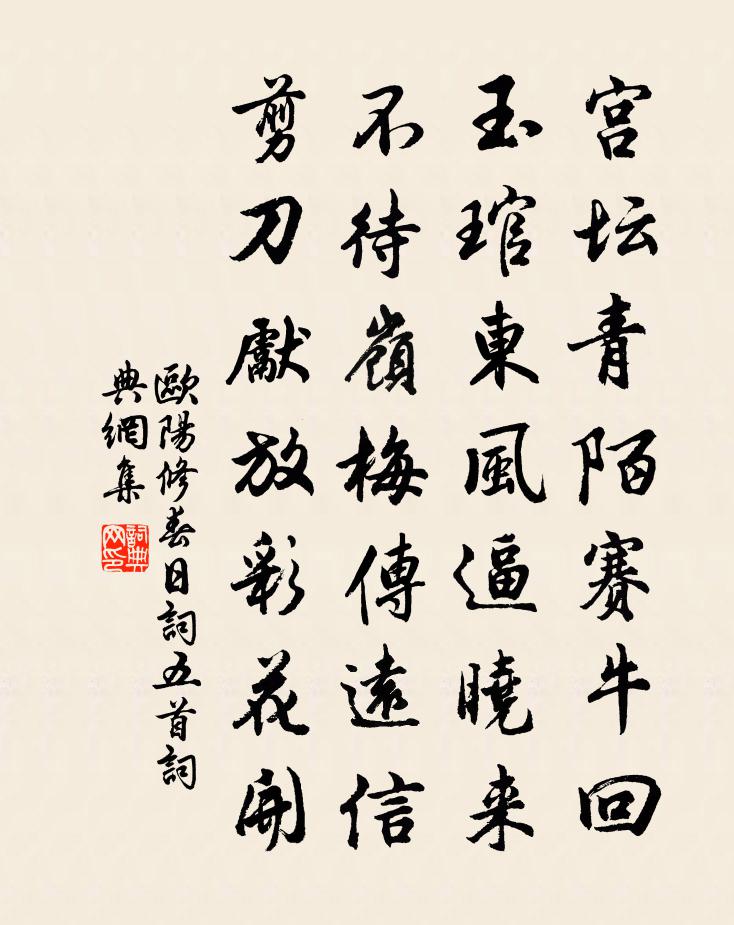 宫坛青陌赛牛回
玉琯東風逼曉来
不待嶺梅傳遠信
剪刀獻放彩花開
歐陽修春日詞五首詞
典網集
詞典網印